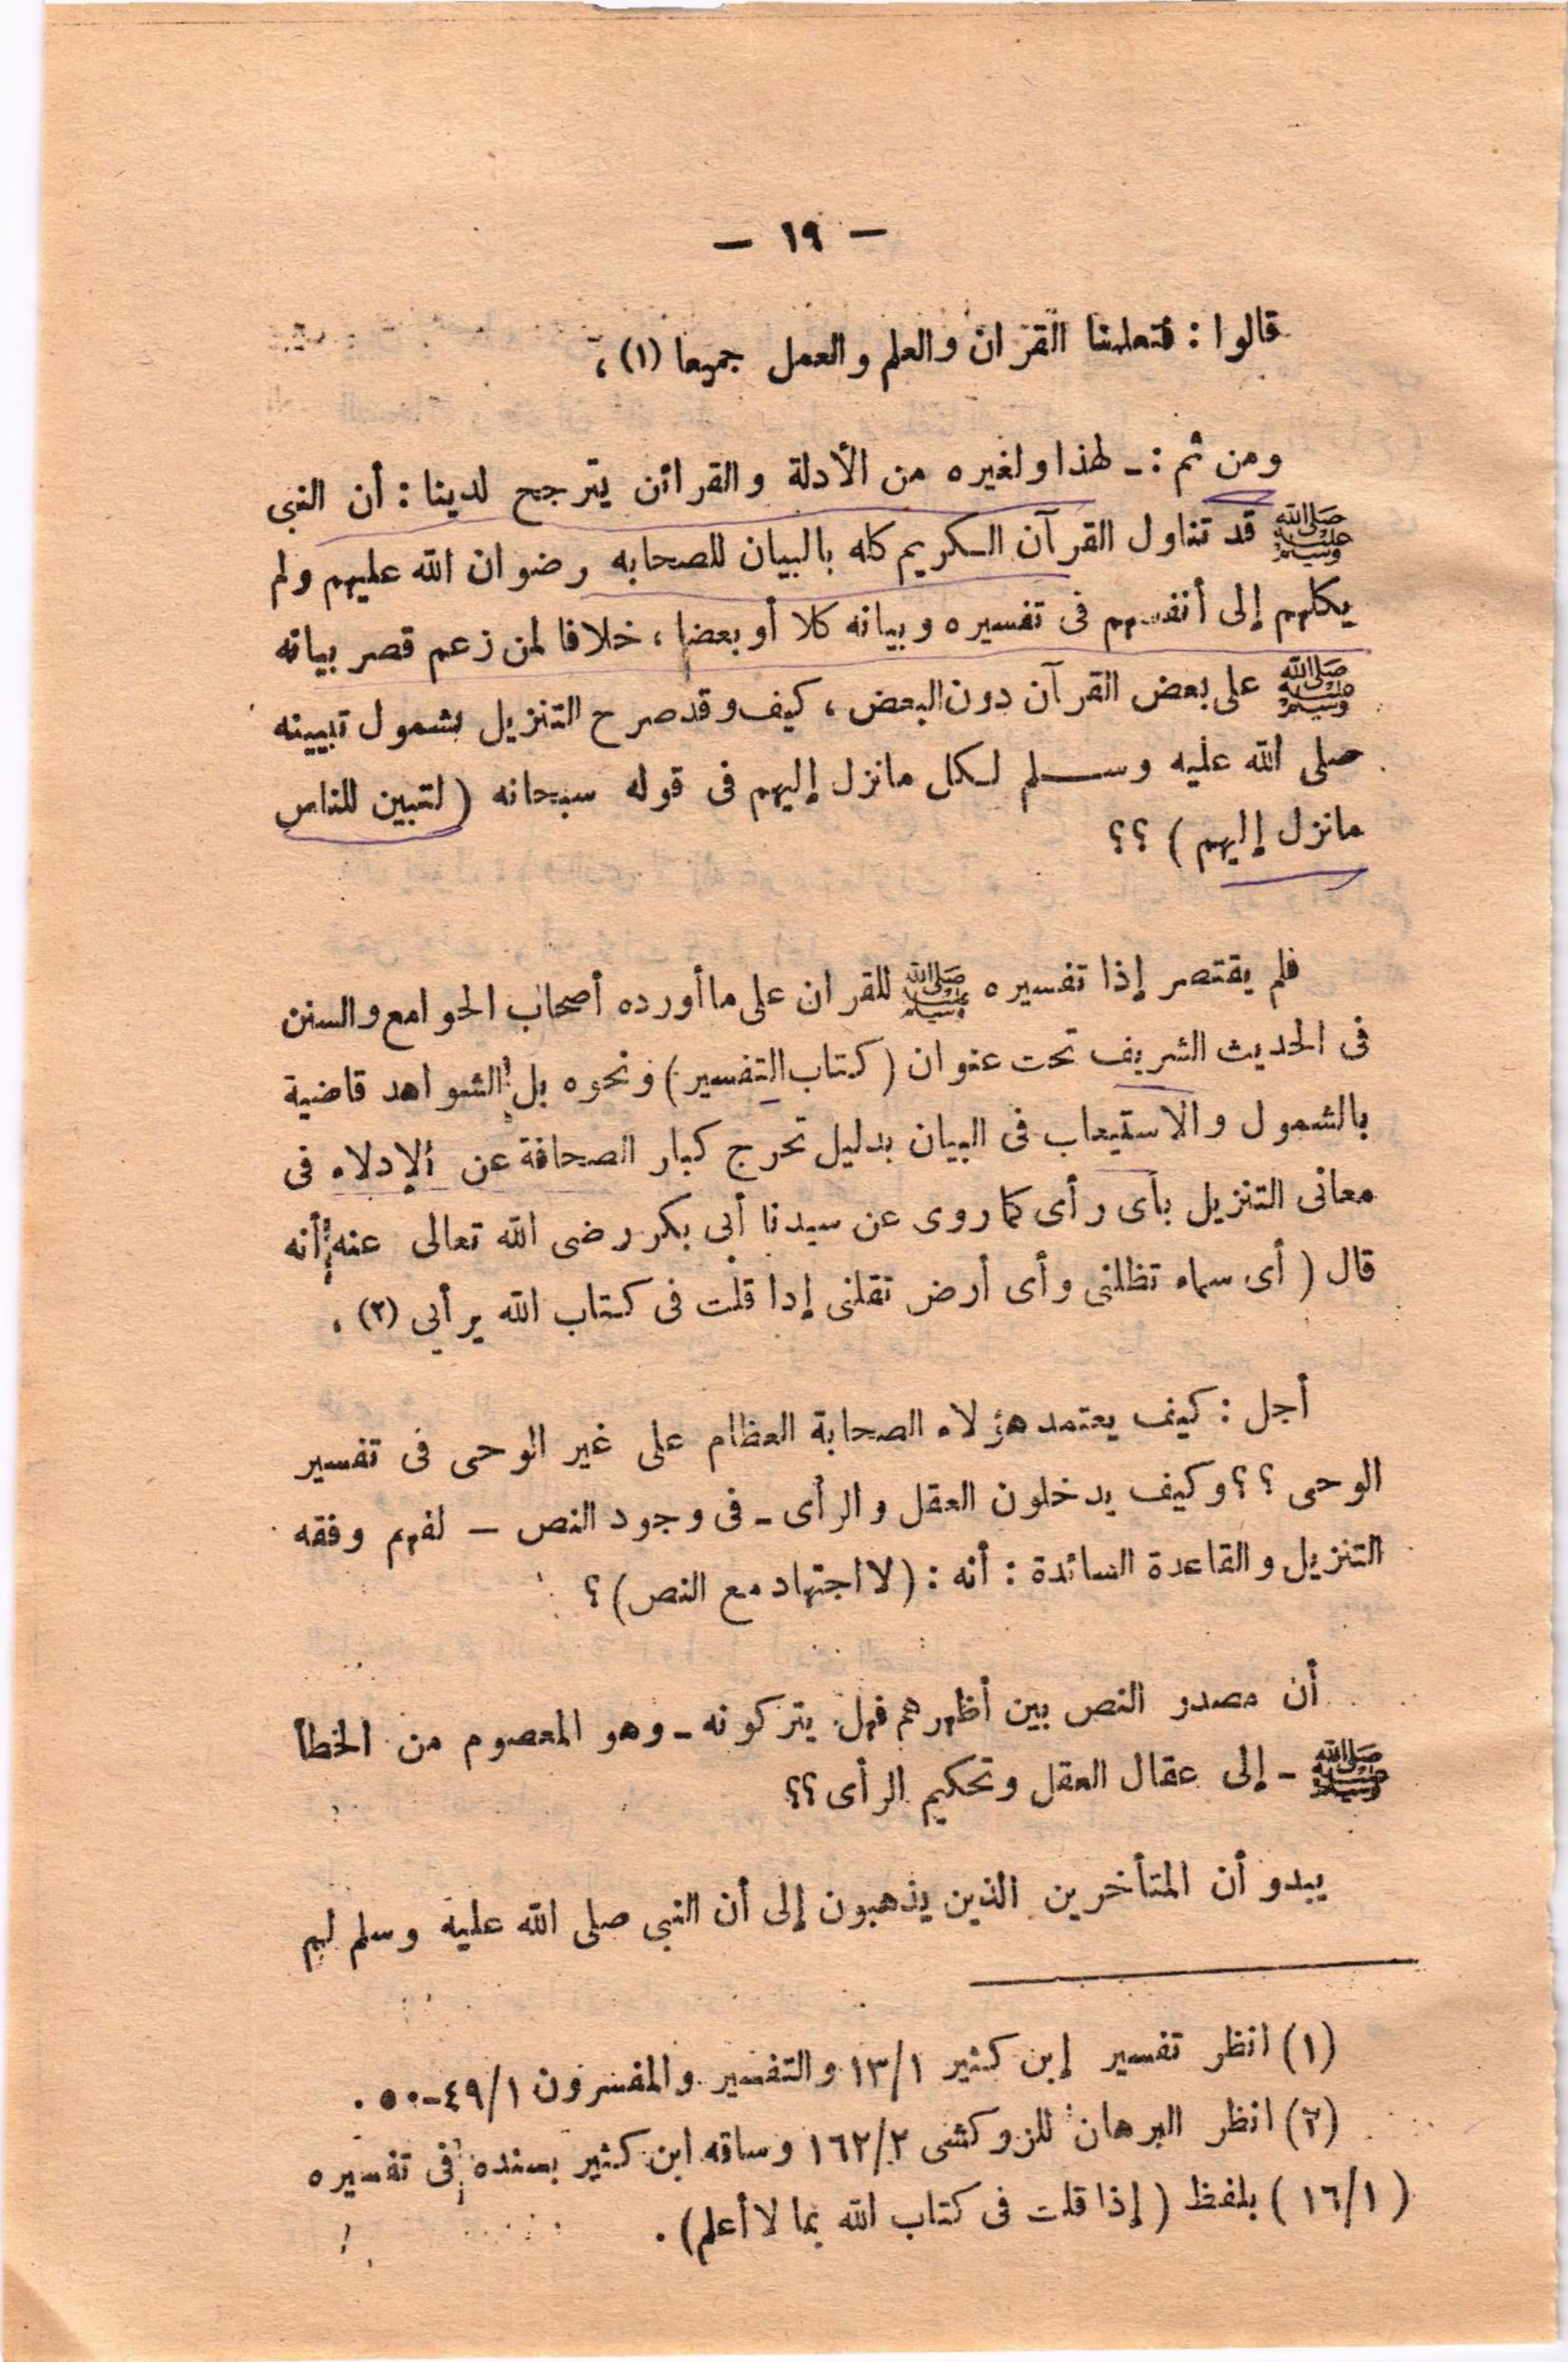 — ١٩ —
قالوا : فتعلمنا القرآن والعلم والعمل جميعا (١) ،
ومن ثم :ـ لهذا ولغيره من الأدلة والقرائن يترجح لدينا : أن النبى
ﷺ قد تناول القرآن الكريم كله بالبيان للصحابه رضوان الله عليهم ولم
يكلهم إلى أنفسهم فى تفسيره وبيانه كلا أو بعضا ، خلافا لمن زعم قصر بيانه
ﷺ على بعض القرآن دون البعض ، كيف وقد صرح التنزيل بشمول تبيينه
صلى الله عليه وسلم لكل مانزل إليهم فى قوله سبحانه ( لتبين للناس
مانزل إليهم ) ؟؟
فلم يقتصر إذا تفسيره ﷺ للقران على ما أورده أصحاب الجوامع والسنن
فى الحديث الشريف تحت عنوان ( كتاب التفسير ) ونحوه بل الشواهد قاضية
بالشمول والاستيعاب فى البيان بدليل تحرج كبار الصحافة عن الإدلاء فى
معانى التنزيل بأى رأى كما روى عن سيدنا أبى بكر رضى الله تعالى عنه أنه
قال ( أى سماء تظلنى وأى أرض تقلنى إدا قلت فى كتاب الله برأيي (٢) .
أجل : كيف يعتمد هؤلاء الصحابة العظام على غير الوحى فى تفسير
الوحى ؟ ؟ وكيف يدخلون العقل والرأى ـ فى وجود النص — لفهم وفقه
التنزيل والقاعدة السائدة : أنه : ( لا اجتهاد مع النص ) ؟
أن مصدر النص بين أظهرهم فهل يتركونه ـ وهو المعصوم من الخطأ
ﷺ ـ إلى عقال العقل وتحكيم الرأى ؟؟
يبدو أن المتأخرين الذين يذهبون إلى أن النبى صلى الله عليه وسلم لم
(١) انظر تفسير إبن كثير ١/١٣ والتفسير والمفسرون ١/٤٩ـ٥٠ .
(٢) انظر البرهان للزوكشى ٢/١٦٢ وساقه ابن كثير بسنده فى تفسيره
( ١/١٦ ) بلفظ ( إذا قلت فى كتاب الله بما لا أعلم ) .